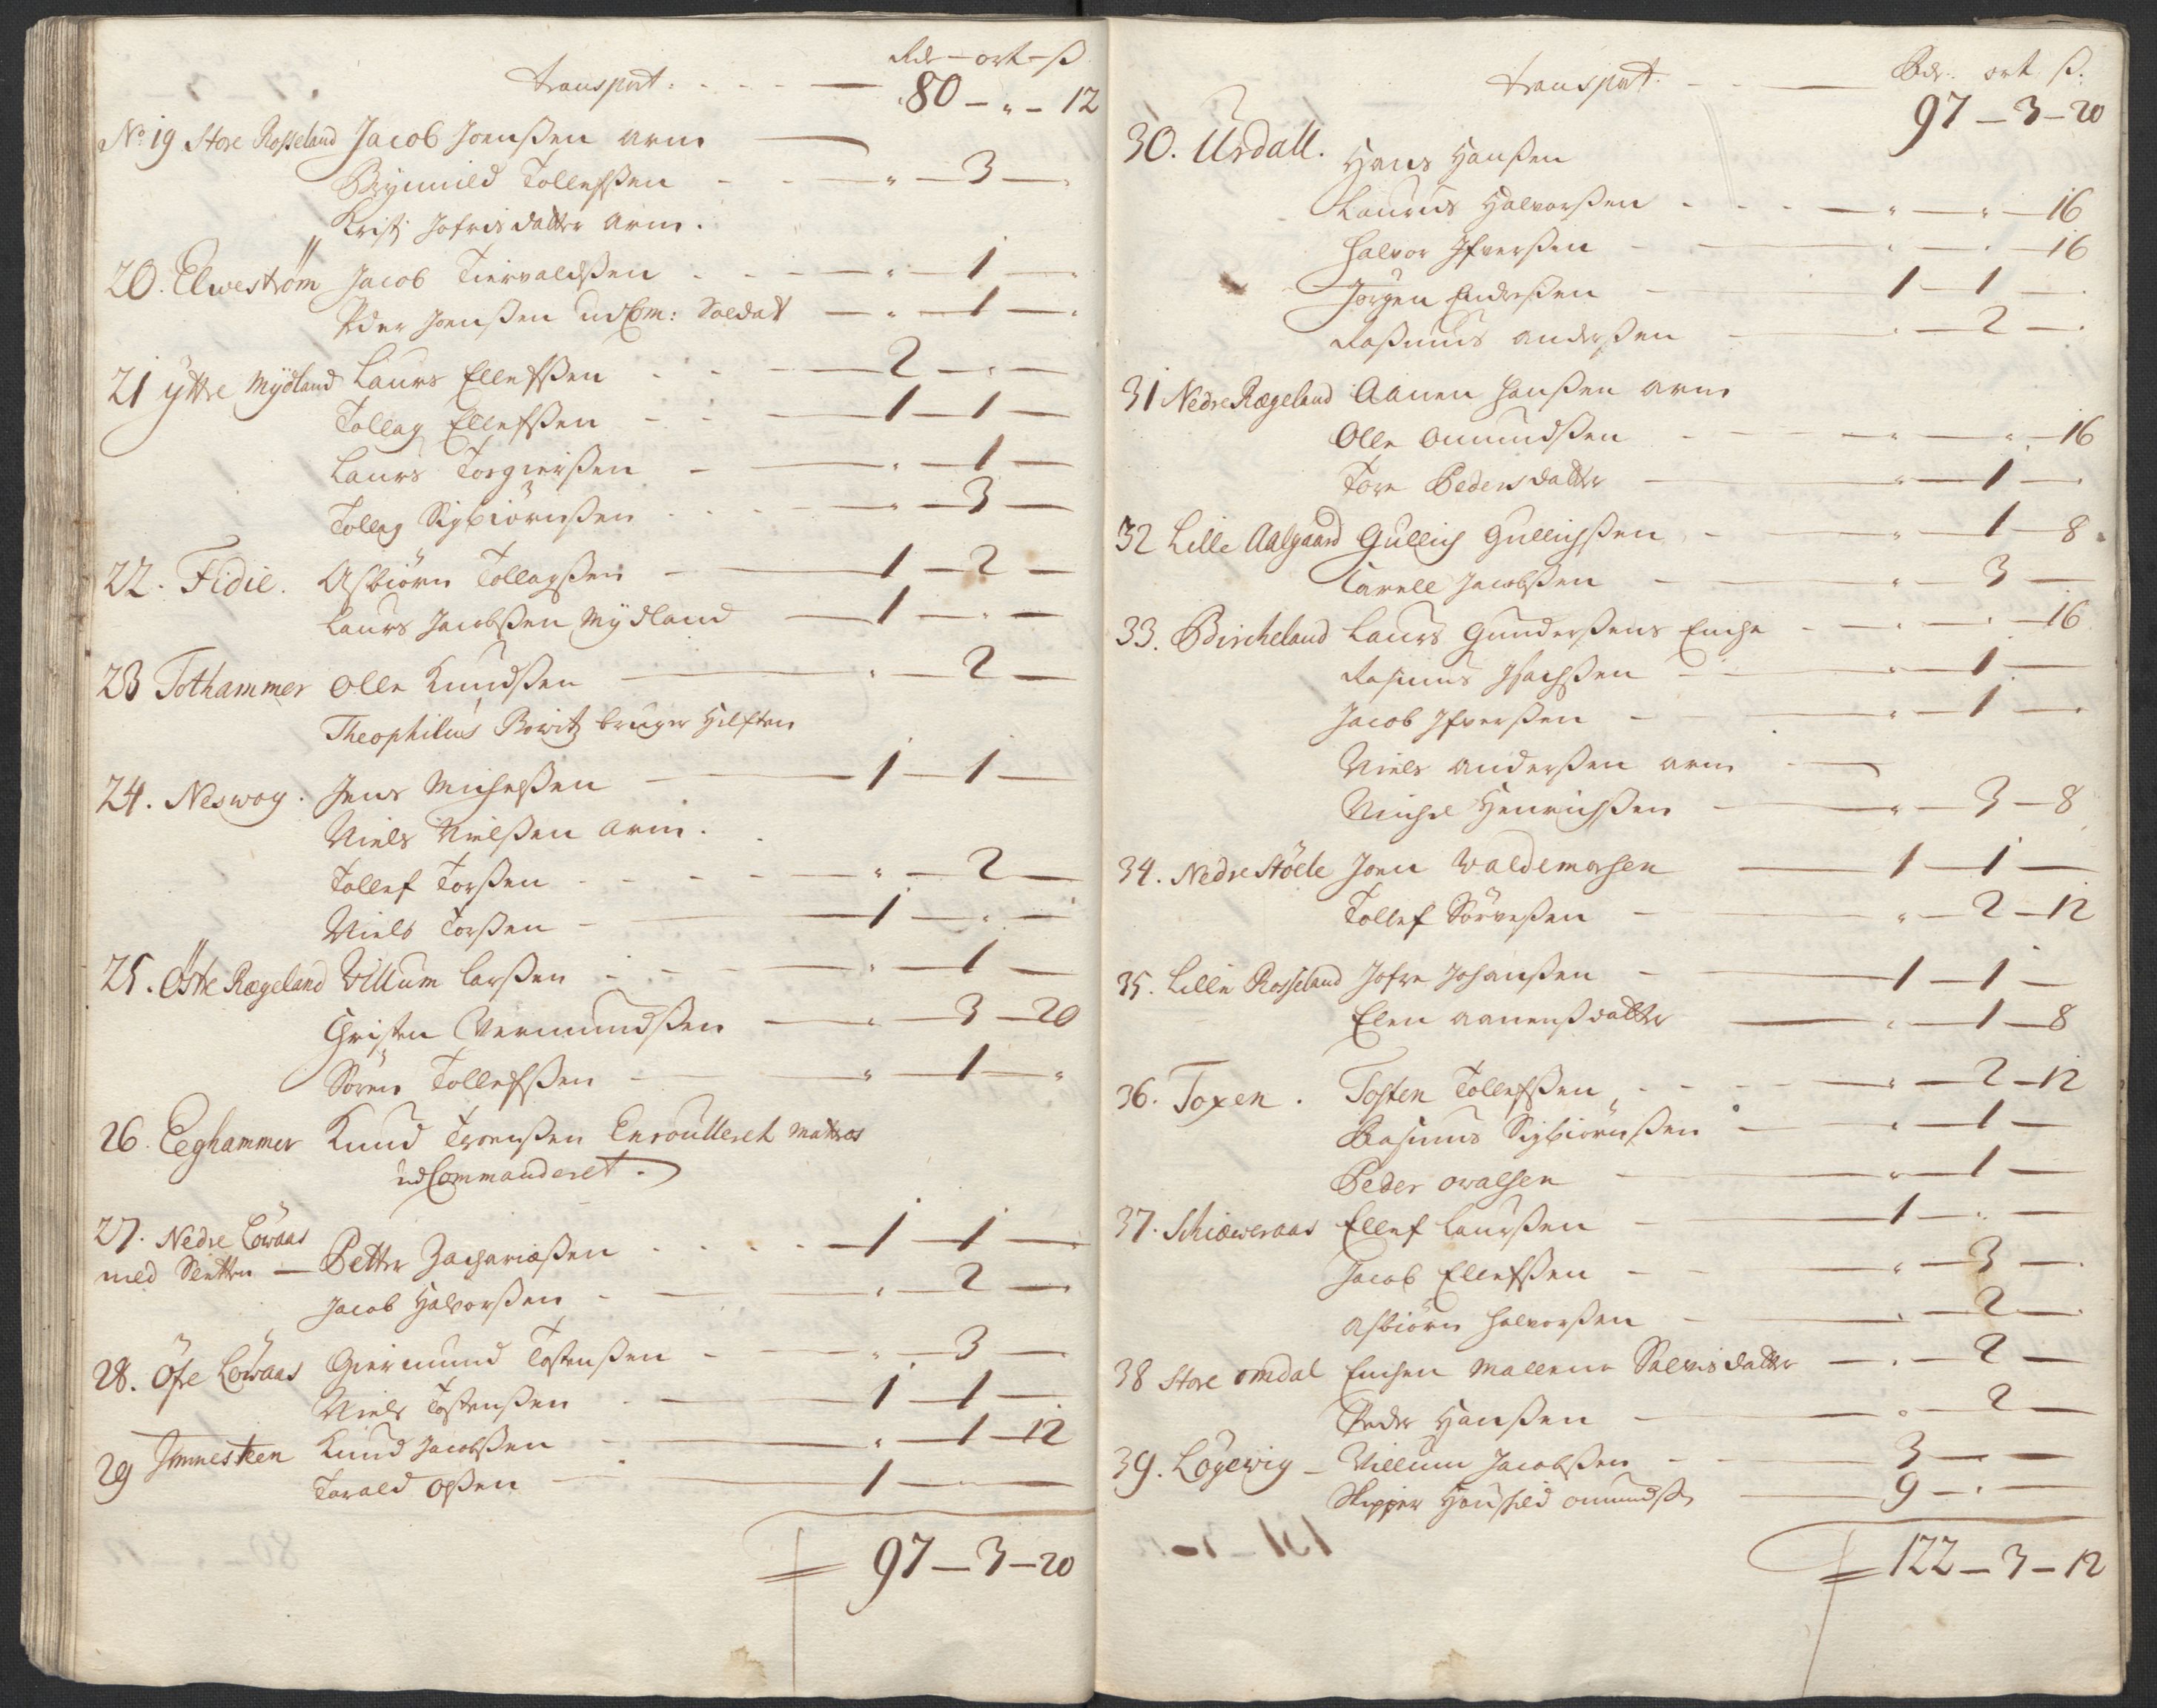 Rdr – ort – ß
transport. 80 – " – 12
No 19 Store Rosseland Jacob Joensßen arm
Brynnild Tollefsßen " – 3 –
Kristj Jofrisdatter arm.
20. Elwestrøm Jacob Tiervaldsßen " – 1 – "
Peder Joensßen udCom: Soldat – " – 1 – "
21 ÿttre Mÿdland Laurs Ellefsßen 2 – " –
Tollag Ellefsßen 1 – 1 –
Laurs Torgierßen – " – 1 –
Tollag Sigbiörnsßen " – 3 –
22. Fidie. Asbiörn Tollagsßen – 1 – 2 –
Laurs Jacobsßen Mÿdland 1 – " –
23 Tothammer Olle Knudsßen " – 2 –
Theophilus Bowitz bruger Helften
24. Neswog. Jens Michelßen 1 – 1 –
Niels Nielsßen arm.
Tollef Torsßen " – 2 –
Niels Torsßen – 1 – " –
25. Östre Rægeland Villum Larsßen " – 1 –
Christen Vermundsßen " – 3 – 20
Sören Tollefsßen " – 1 – "
26. Eeghammer Knud Tronsßen Enroulleret Matros
udCommanderet.
27. Nedre Löwaas
med Sletten – Petter Zachariæsßen 1 – 1 –
Jacob Halvorsßen " – 2 –
28. Öfre Löwaas Giermund Tostensßen " – 3 –
Niels Tostensßen 1 – 1 –
29 Immesteen Knud Jacobsßen " – 1 – 12
Tarald Osßen 1 – " –
97 – 3 – 20
transport. Rdr. ort ß.
97 – 3 – 20
30. Urdall. Hans Hansßen
Laurits Halvorsßen " – " – 16
Halvor Ifversßen " – " – 16
Jörgen Endresßen 1 – 1 –
Rasmus Andersßen " – 2 –
31 Nedre Rægeland Aanen Hansßen arm
Olle Omundsßen " – " – 16
Tore Pedersdatter " – 1 –
32 Lille Aalgaard Gullich Gullichsßen " – 1 – 8
Tarell Jacobsßen " – 3 –
33. Bircheland Laurs Gundersßens Enche " – " – 16
Rasmus Isachsßen " – 1 –
Jacob Ifversßen " – 1 –
Niels Andersßen arm
Michel Henrichsßen " – 3 – 8
34. Nedre Stöele Joen Waldemorsen 1 – 1 –
Tollef Sörensßen " – 2 – 12
35. Lille Rosseland Jofre Johansßen 1 – 1 –
Elen Aanensdatter " – 1 – 8
36. Toxen. Tosten Tollefsßen " – 2 – 12
Rasmus Sigbiörnsßen " – 1 –
Peder Ovalsen " – 1 –
37. Schiæweraas Ellef Laursßen 1 – " –
Jacob Ellefsßen " – 3 –
Asbiörn Halvorsßen " – 2 –
38 Store Omdal Enchen Mallene Salvesdatter – " – 2 –
Peder Hansßen " – 2 –
39. Lögewig – Villum Jacobsßen 3 – " –
Skipper Hansßild Omundsß 9 – " –
122 – 3 – 12